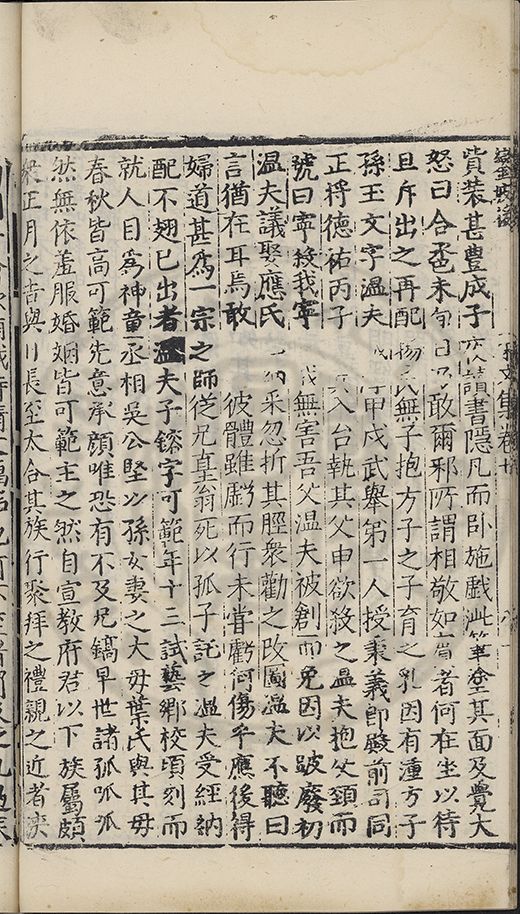 貲裝甚豊成子夜讀書隱几而卧施戲泚筆塗其面及覺大
怒曰合巹未旬日乃敢爾邪所謂相敬如賓者何在坐以待
旦斥出之再配楊氏無子抱方子之子育之乳因有湩方子
孫王文字温夫甲戌武舉第一人授秉義郎殿前司同
正將德祐丙子入台執其父申欲殺之温夫抱父頸而
號曰寧殺我寧無害吾父温夫被創而免因以跛廢初
温夫議娶應氏納采忽折其脛衆勸之改圖温夫不聽曰
言猶在耳焉敢彼體雖虧而行未甞虧何傷乎應後得
婦道甚爲一宗之師從兄皇翁死以孤子託之温夫受經納
配不翅已出者温夫子鎔字可範年十三試藝鄉校頃刻而
就人目爲神童丞相吳公堅以孫女妻之大母葉氏與其母
春秋皆高可範先意承顔唯恐有不及兄鎬早世諸孤呱呱
然無依羞服婚姻皆可範主之然自宣教府君以下族屬頗
衆正月之吉與川長至太合其族行聚拜之禮親之近者浹